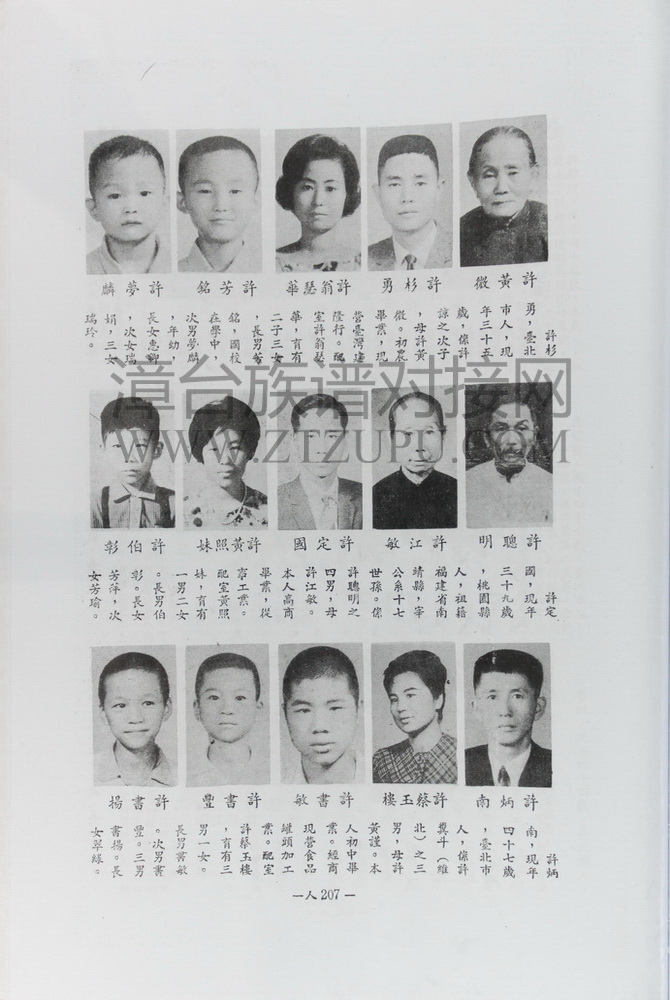 許黃微
許杉勇
許翁瑟華
許芳銘
許夢麟
許杉
勇，臺北
市人，現
年三十五
歲，係許
諒之次子
，母許黃
微。初農
畢業，現
營臺灣建
隆行。配
室許翁瑟
華，育有
二子三女
，長男芳
銘，國校
在學中，
次男夢麟
，年幼，
長女惠卿
，次女瑞
娟，三女
瑞玲。
漳台族谱对接网
WWW.ZTZUPU.COM
許聰明
許江敏
許定國
許黃照妹
許伯彰
許定
國，現年
三十九歲
，桃園縣
人，祖籍
福建省南
靖縣，宰
公系十七
世孫。係
許聰明之
四男，母
許江敏。
本人高商
畢業，從
工業。
配室黃照
妹，育有
一男二女
。長男伯
彰。長女
芳萍，次
女芳瑜。
許炳南
許蔡玉樓
許書敏
許書豐
許書揚
許炳
南，現年
四十七歲
，臺北市
人，係許
糞斗（維
北）之三
男，母許
黃謹。本
人初中畢
業。經商
現營食品
罐頭加工
業。配室
許蔡玉樓
，育有三
男一女。
長男書敏
。次男書
豐。三男
書揚。長
女翠綠。
—人207—